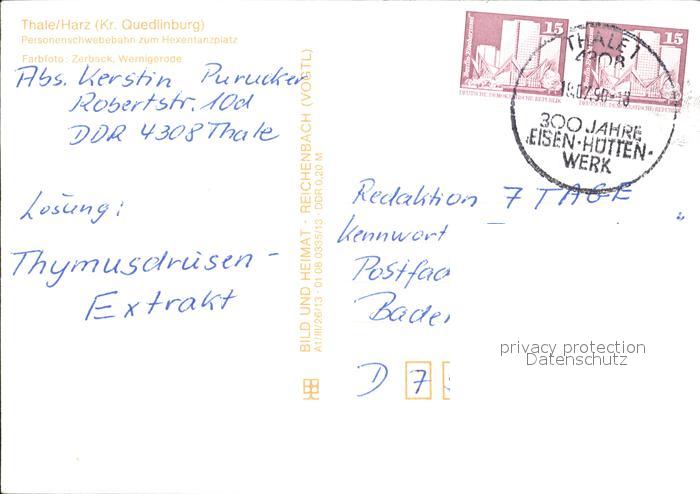 Thale/Harz (Kr. Quedlinburg)
Personenschwebebahn zum Hexentanzplatz
Farbfoto: Zerback, Wernigerode
Abs. Kerstin Purucker
Robertstr. 10d
DDR 4308 Thale
Lösung:
Thymusdrüsen-
Extrakt
BILD UND HEIMAT · REICHENBACH (VOGTL)
A1/III/26/13 · 01 08 0335/13 · DDR 0,20 M
Berlin, Alexanderplatz
15
DEUTSCHE DEMOKRATISCHE REPUBLIK
15
DEUTSCHE DEMOKRATISCHE REPUBLIK
THALE 1
4308
300 JAHRE
EISEN-HÜTTEN-
WERK
Redaktion 7 TAGE
Kennwort "
Postfac
Baden
D 7
privacy protection
Datenschutz